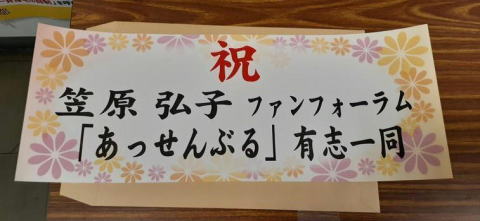 祝
笠原 弘子 ファンフォーラム
「あっせんぶる」有志一同